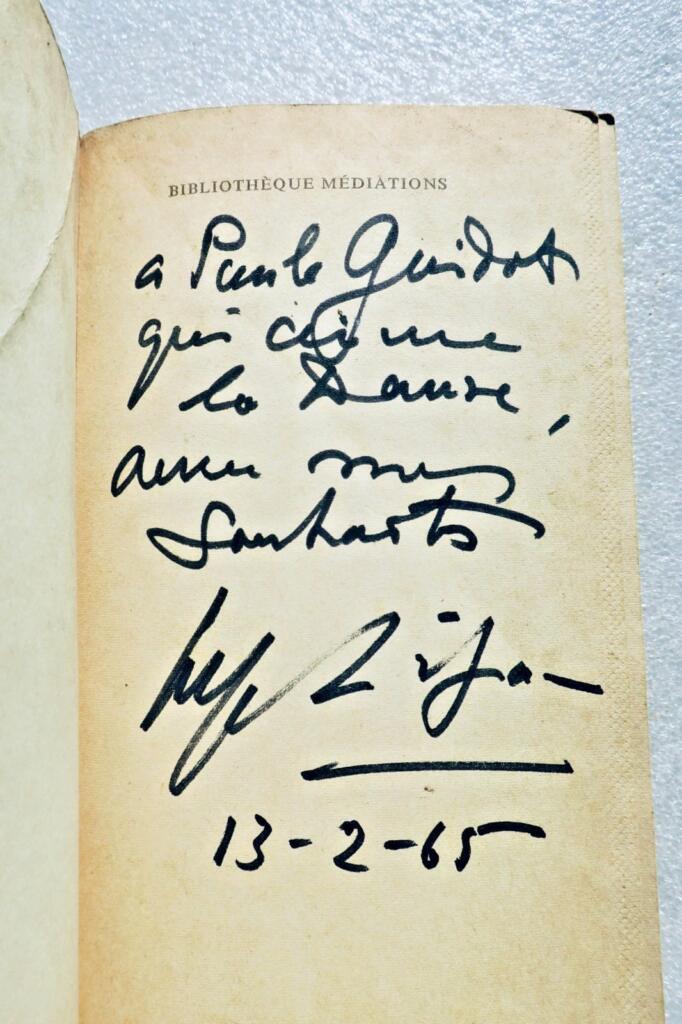 BIBLIOTHÈQUE MÉDIATIONS
a Paule Guidot
qui aime
la Danse,
avec mes
souhaits
Serge Lifar
13-2-65